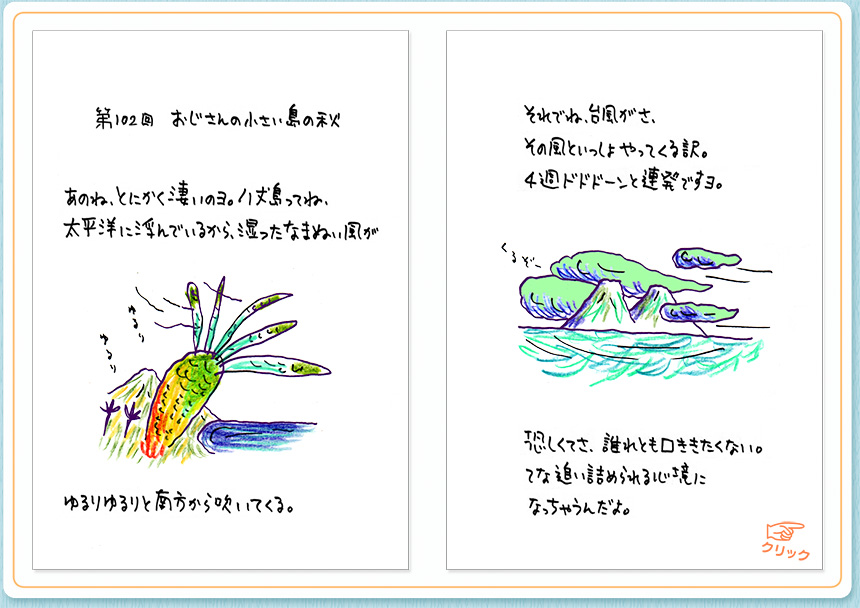 第102回 おじさんの小さい島の秋
あのね、とにかく凄いのヨ。八丈島ってね、
太平洋に浮んでいるから、湿ったなまぬい風が
ゆるり
ゆるり
ゆるりゆるりと南方から吹いてくる。
それでね、台風がさ、
その風といっしょやってくる訳。
4週ドドドーンと連発ですヨ。
くるぞー
恐しくてさ、誰れとも口ききたくない。
てな追い詰められる心境に
なっちゃうんだよ。
クリック